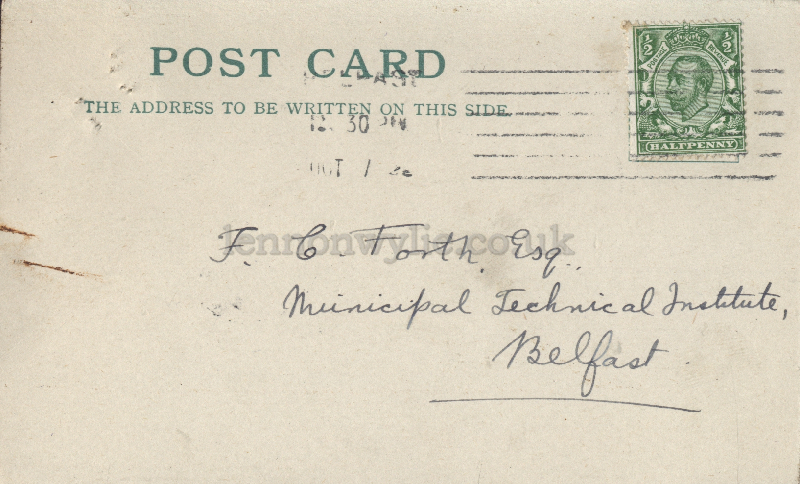 POST CARD
THE ADDRESS TO BE WRITTEN ON THIS SIDE.
BELFAST
30 PM
OCT
½ ½
POSTAGE REVENUE
HALFPENNY
lennonwylie.co.uk
F. C. Forth, Esq.,
Municipal Technical Institute,
Belfast.